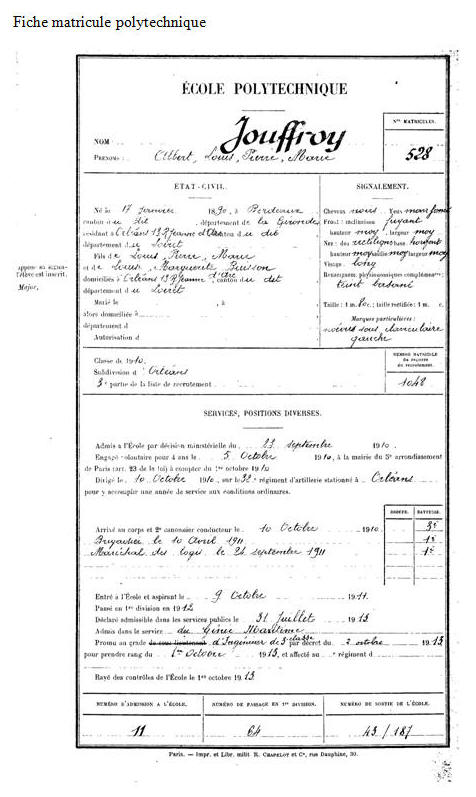 Fiche matricule polytechnique
ÉCOLE POLYTECHNIQUE
Nos MATRICULES.
528
NOM : Jouffroy
PRÉNOMS : Albert, Louis, Pierre, Marie
ÉTAT-CIVIL.
Né le 17 Janvier 1890, à Bordeaux
canton du dit, département de la Gironde
résidant à Orléans 13 R Jeanne d'Arc canton du dit
département du Loiret
Fils de Louis, Pierre, Marie
et de Louise, Marguerite
domiciliés à Orléans 13 R. Jeanne d'Arc, canton du dit
département du Loiret
Marié le , à
alors domiciliée à
département d
Autorisation d
SIGNALEMENT.
Cheveux noirs. Yeux
Front : inclinaison fuyant
hauteur moy, largeur moy
Nez : dos rectiligne base
hauteur moy saillie moy largeur moy
Visage : long
Renseignem. physionomiques complémentres :
teint basané
Taille : 1 m. c. ; taille rectifiée : 1 m. c.
Marques particulières :
sous claviculaire
gauche
Major,
Classe de 1910.
Subdivision d'Orléans
3e partie de la liste de recrutement
NUMÉRO MATRICULE
du registre
du recrutement.
1048
SERVICES, POSITIONS DIVERSES.
Admis à l'École par décision ministérielle du 23 septembre 1910.
Engagé volontaire pour 4 ans le 5 Octobre 1910, à la mairie du 5e arrondissement
de Paris (art. 23 de la loi) à compter du 1er octobre 1910
Dirigé le 10 Octobre 1910, sur le 32e régiment d'artillerie stationné à Orléans
pour y accomplir une année de service aux conditions ordinaires.
GROUPE. BATTERIE.
Arrivé au corps et 2e canonnier conducteur le 10 Octobre 1910 3e
Brigadier le 10 Avril 1911 1e
Maréchal des logis le 24 septembre 1911 1e
Entré à l'École et aspirant le 9 Octobre 1911.
Passé en 1re division en 1912
Déclaré admissible dans les services publics le 31 Juillet 1913
Admis dans le service du Génie Maritime
Promu au grade de sous-lieutenant d'Ingénieur de 3e classe par décret du 2 octobre 1913,
pour prendre rang du 1er Octobre 1913, et affecté au régiment d
Rayé des contrôles de l'École le 1er octobre 1913
NUMÉRO D'ADMISSION A L'ÉCOLE.
NUMÉRO DE PASSAGE EN 1re DIVISION.
NUMÉRO DE SORTIE DE L'ÉCOLE.
11
64
43 / 187
Paris. — Impr. et Libr. milit R. CHAPELOT et Ce, rue Dauphine, 30.